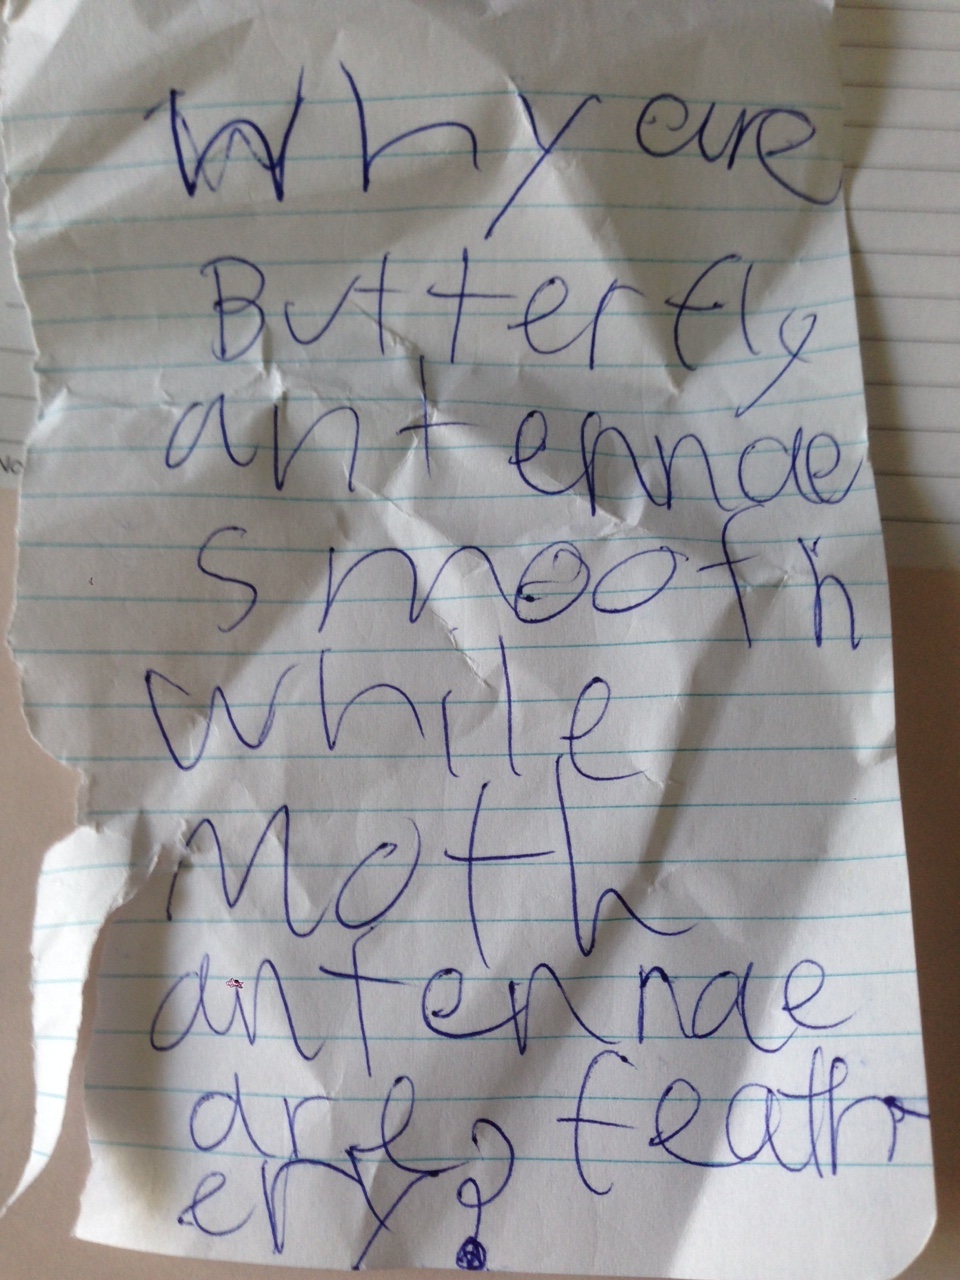 Why are
Butterfly
antennae
smooth
while
Moth
antennae
are feath
ery?